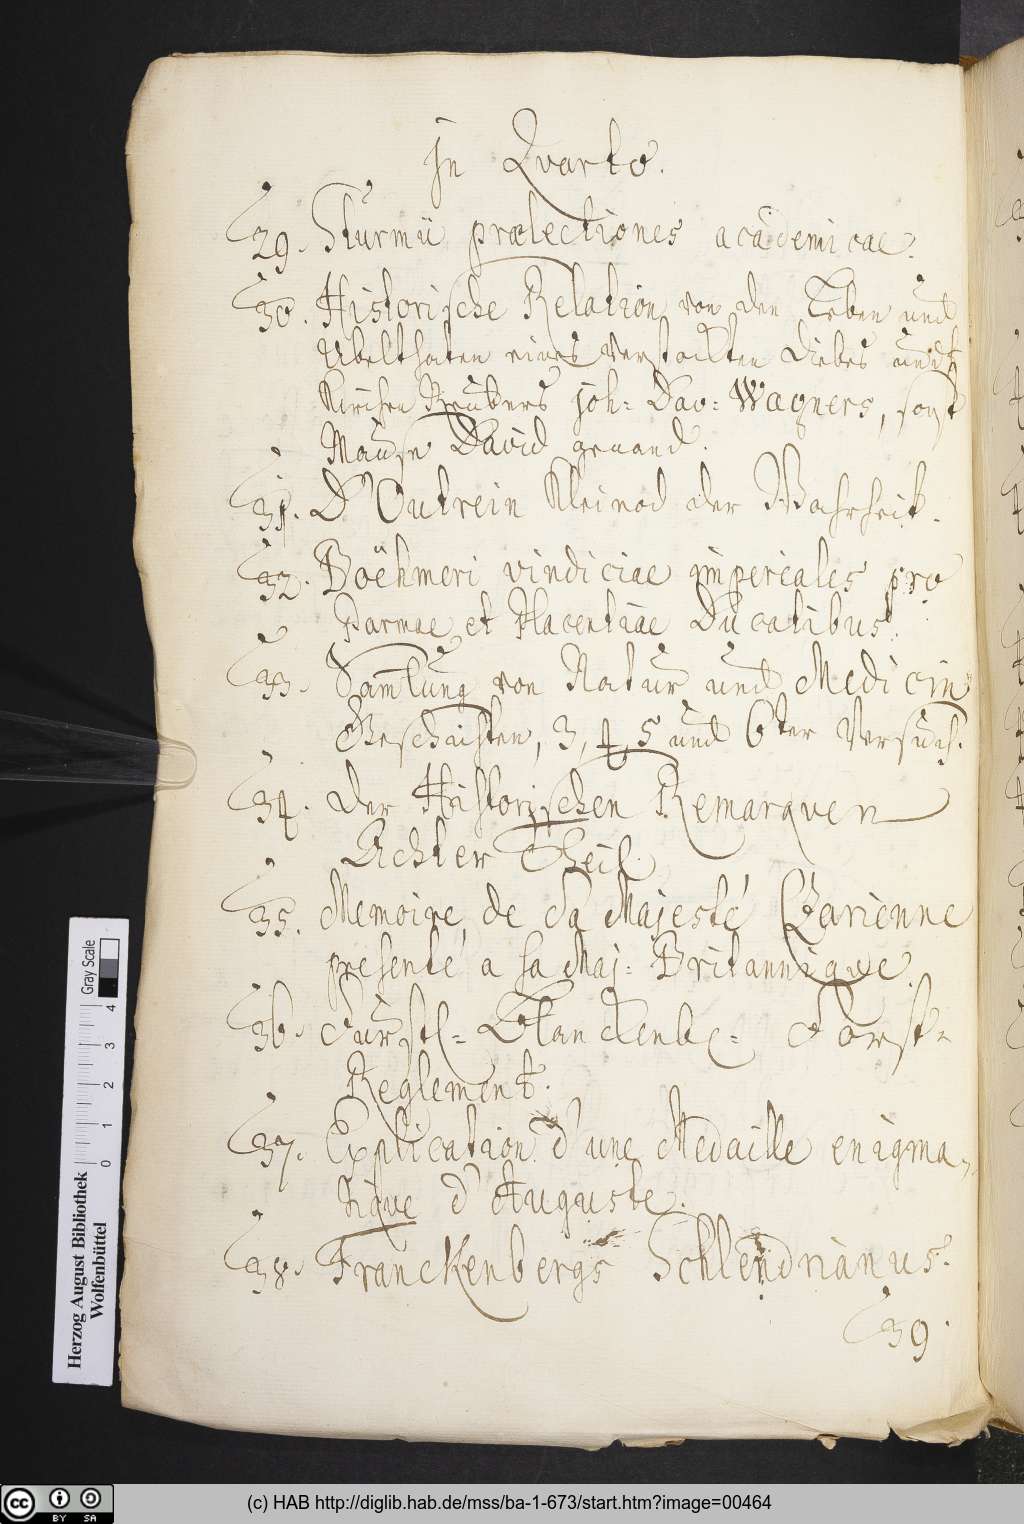 in Qvarto.
29. Sturmii prælectiones academicae.
30. Historische Relation von den Leben und
Ubelthaten eines verstockten Diebes undt
Kirchen Reubers joh: Dav: Wagners, sonst
Mause David genand.
31. D'Outrein Kleinod der Wahrheit.
32. Böehmeri vindiciae imperiales pro
Parmae et Placentiae Ducatibus.
33. Samlung von Natur und Medicin
Geschichten, 3, 4, 5 und 6ter Versuch.
34. der Historischen Remarqven
Achter Theil.
35. Memoire de Sa Majesté Czarienne
presenté a sa Maj: Britannique.
36. Fürstl: Blanckenb: Forst-
Reglement.
37. Explication d'une Medaille enigma-
tique d'Auguste.
38. Franckenbergs Schlendrianus.
39.
Herzog August Bibliothek
Wolfenbüttel
Gray Scale
0 1 2 3 4
cc BY SA
(c) HAB http://diglib.hab.de/mss/ba-1-673/start.htm?image=00464